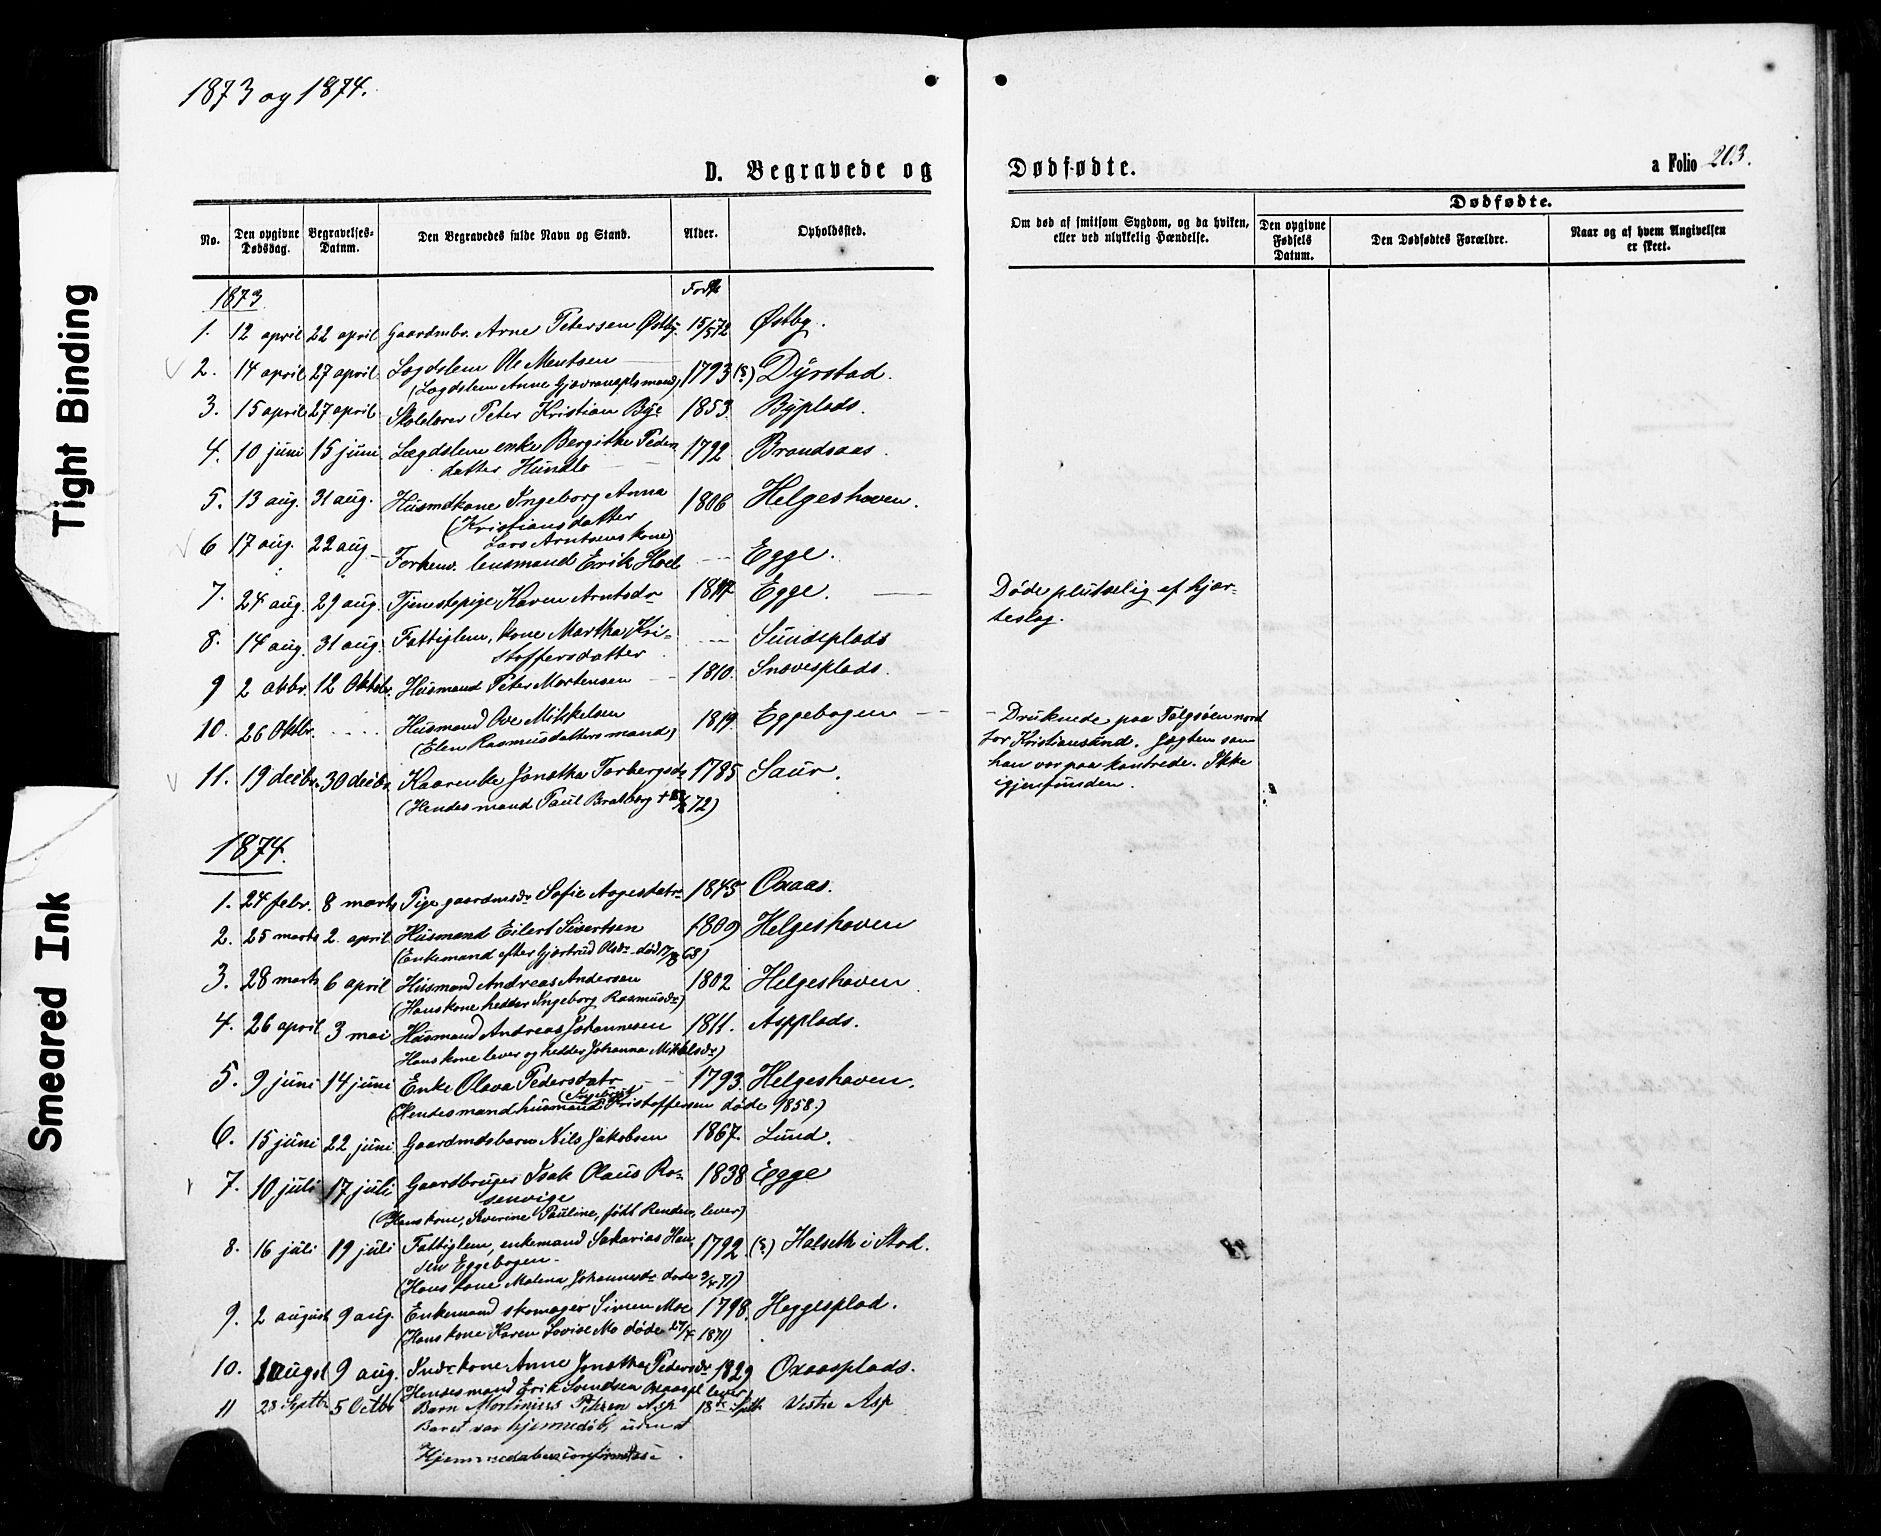 1873 og 1874.
D. Begravede og Dødfødte.
a Folio 203.
No.
Den opgivne Dødsdag.
Begravelses-Datum.
Den Begravedes fulde Navn og Stand.
Alder.
Opholdssted.
Om død af smitsom Sygdom, og da hvilken,
eller ved ulykkelig Hændelse.
Dødfødte.
Den opgivne Fødsels Datum.
Den Dødfødtes Forældre.
Naar og af hvem Angivelsen
er skeet.
1873 Født
1. 12 april 22 april Gaardmbr. Arne Petersen Østby. 15/5 72 Østby.
2. 14 april 27 april Lægdslem Ole Mentsen 1793 (S.) Dyrstad.
(Lægdslem Anne mand)
3. 15 april 27 april Skolelærer Peter Kristian Bye 1853 Byplads.
4. 10 juni 15 juni Lægdslem enke Bergithe Peders 1792 Brandsaas.
datter Hundlo
5. 13 aug. 31 aug. Husmdkone Ingeborg Anna 1806 Helgeshaven.
(Kristiansdatter
Lars Arntsens kone)
6 17 aug. 22 aug. Forhenv. lensmand Erik Hoel Egge.
7. 24 aug. 29 aug. Tjenestepige Karen Arntsdr Egge. Døde plutselig af hjær-
teslag.
8. 14 aug. 31 aug. Fattiglem, kone Martha Kri- Sundsplads
stoffersdatter
9 2 oktbr. 12 Oktobr. Husmand Peter Mortensen 1810. Snavesplads.
10. 26 Oktbr. Husmand Ove Mikkelsen 1819. Eggebogen - Druknede paa Folgsøen nord
(Elen Rasmusdatters mand) for Kristiansund. Jagten som
han var paa kantrede. Ikke
igjenfunden.
11. 19 decbr. 30 decbr. Kaarenke Jonetha Torbergsdr 1785 Saur.
(Hendes mand Paul Bratberg + 72)
1874.
1. 24 febr. 8 marts Pige gaardmsdr Sofie Aagesdatr 1845 Oxaas.
2. 25 marts 2. april Husmand Eilert Sivertsen 1809 Helgeshaven
(Enkemand efter Gjertrud Olsdr død 68)
3. 28 marts 6 april Husmand Andreas Andersen 1802 Helgeshaven
(Hans kone hedder Ingeborg Rasmusdr)
4. 26 april 3 mai Husmand Andreas Johannesen 1811. Aspplads.
Hans kone lever og hedder Johanna Mikkelsdr)
5. 9 juni 14 juni Enke Olava Pedersdatr 1793. Helgeshaven.
(Hendes mand husmand Kristoffersen døde 1858.)
6. 15 juni 22 juni Gaardmdsbarn Nils Jakobsen 1867. Lund.
7. 10 juli 17 juli Gaardbruger Isak Olaus Ro- 1838 Egge
senvige
(Hans kone, Severine Pauline, født Renden, lever)
8. 16 juli 19 juli Fattiglem, enkemand Sakarias Han- 1792. (S.) Halseth i Stod.
Eggebogen.
(Hans kone Malena Johannesdr døde 71)
9. 2 august 9 aug. Enkemand skomager Simen Moe 1798. Heggesplad.
(Hans kone Karen Lovise Mo døde 27/4 1871)
10. august 9 aug. Indrkone Anne Jonetha Pedersdr 1829 Oxaasplads.
(Hendes mand Erik Svendsen Oxaaspl lever)
11 23 Septbr 5 Octbr Barn Martinius Petersen Asp 18de Septb Vestre Asp
Barnet var hjemmedøbt, uden at
Hjemmedaaben
Tight Binding
Smeared Ink